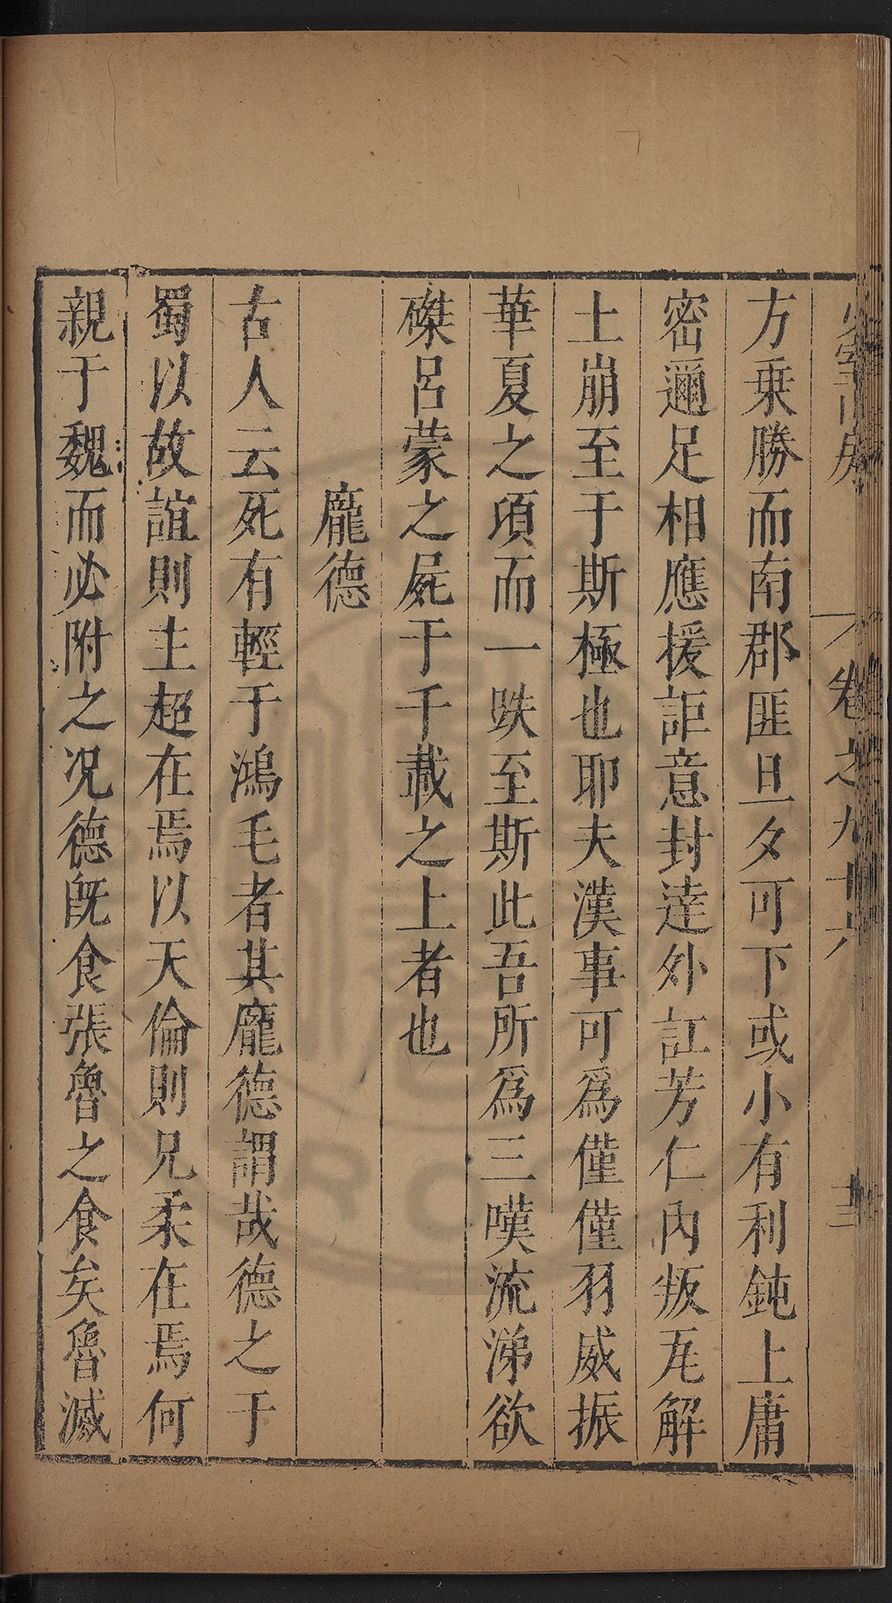 卷之九十六
方乗勝而南郡匪旦夕可下或小有利鈍上庸
密邇足相應援詎意封逹外訌芳仁内叛瓦解
土崩至于斯極也耶夫漢事可爲僅僅羽威振
華夏之頃而一跌至斯此吾所爲三嘆流涕欲
磔呂蒙之屍于千載之上者也
龎德
古人云死有輕于鴻毛者其龎德謂哉德之于
蜀以故誼則主超在焉以天倫則兄柔在焉何
親于魏而必附之况德旣食張魯之食矣魯滅